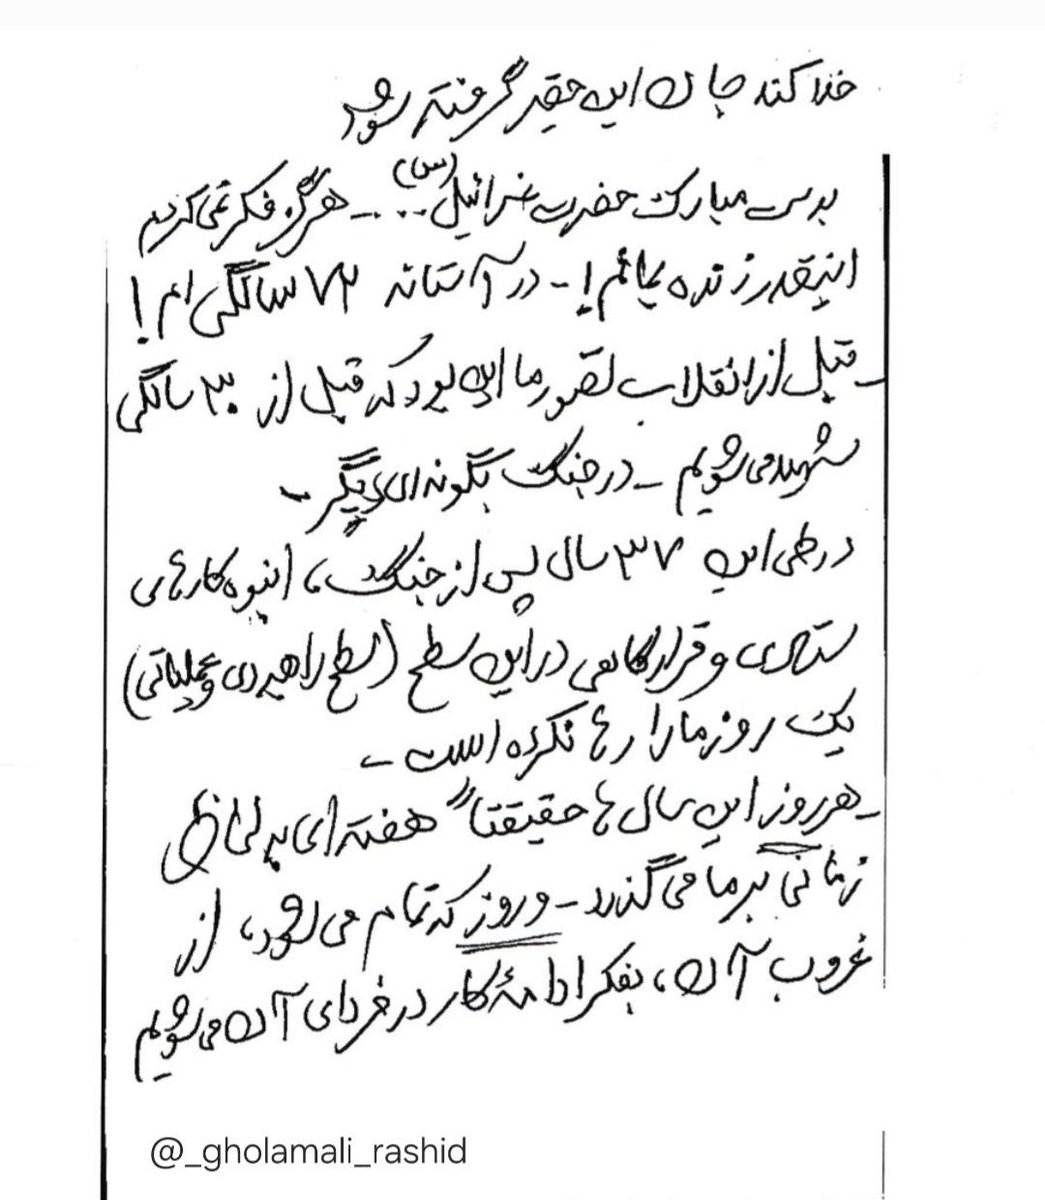 خدا کند جان این حقیر گرفته شود
بدست مبارک حضرت عزرائیل (س) ... - هرگز فکر نمی کردیم
اینقدر زنده بمانم! - در آستانه ۷۲ سالگی ام!
- قبل از انقلاب تصور ما این بود که قبل از ۳۰ سالگی
شهید می شویم - در جنگ بگونه ای دیگر -
در طی این ۳۷ سال پس از جنگ، انبوه کارهای
ستادی و قرارگاهی در این سطح (سطح راهبردی و عملیاتی)
یک روز ما را رها نکرده است -
- هر روز این سال ها حقیقتاً هفته ای به لحاظ
زمانی بر ما می گذرد - و روز که تمام می شود، از
غروب آن، بفکر ادامۀ کار در فردای آن می شویم
@_gholamali_rashid